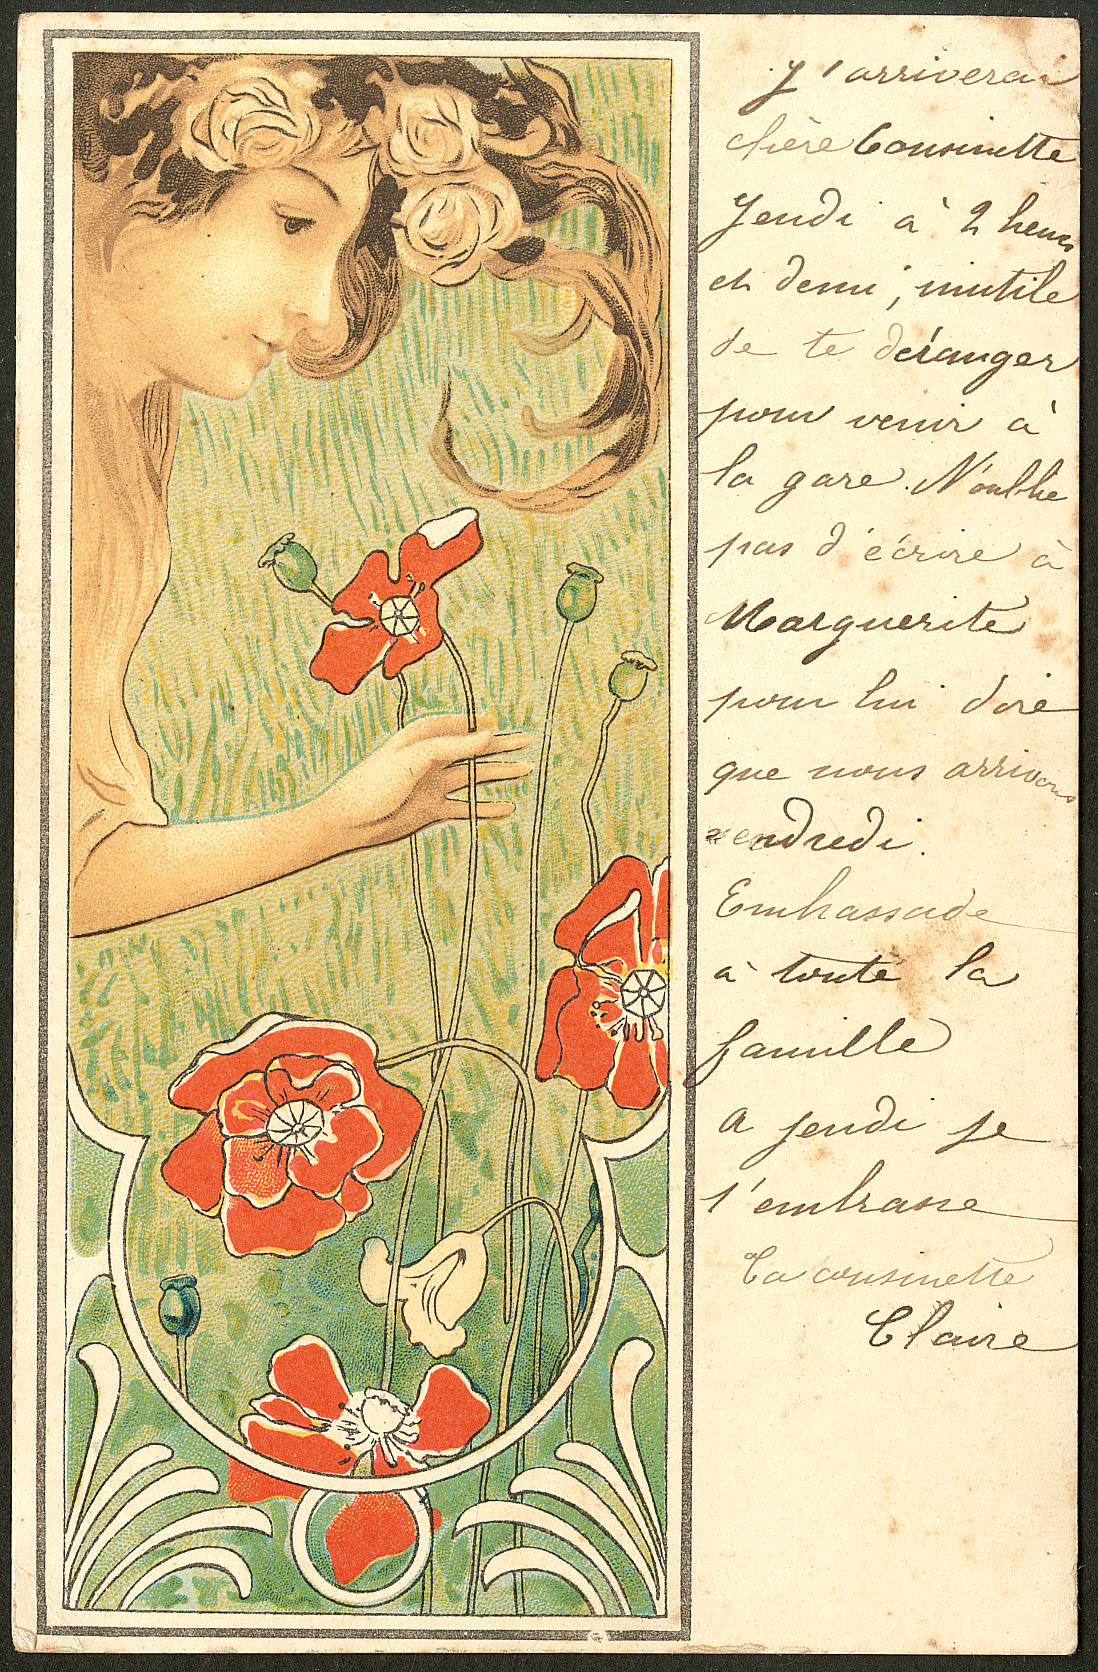 J'arriverai
chère Cousinette
Jeudi à 2 heures
et demi, inutile
de te déranger
pour venir à
la gare. N'oublie
pas d'écrire à
Marguerite
pour lui dire
que nous arrivons
vendredi.
Embrassade
à toute la
famille
A jeudi je
t'embrasse
Ta cousinette
Claire